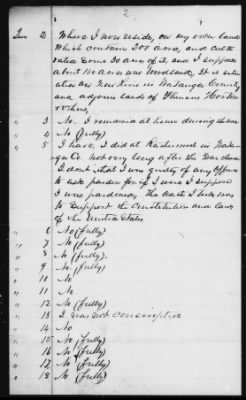 2
Ques 2 Where I now reside, on my own land
Which contain 200 acres, and cult
vated some 30 acres of it, and I suppose
about 100 acres was woodland. It is situ
ated on New River in Watauga County
and adjoins lands of Phineas Horton
& others
" 3 No. I remained at home during the war
" 4 No (fully)
" 5 I have, I did at Richmond in Watau
ga Co. not very long after the War closed
I dont that I was guilty of any offence
to ask pardon for if I was I suppose
I was pardoned, The Oath I took was
to support the Constitution and laws
of the United States
" 6 No (fully)
" 7 No (fully)
" 8 No (fully).
" 9 No (fully)
" 10 No
" 11 No
" 12 No (fully)
" 13 I was not conscriptive
" 14 No
" 15 No (fully)
" 16 No (fully)
" 17 No (fully)
" 18 No (fully)